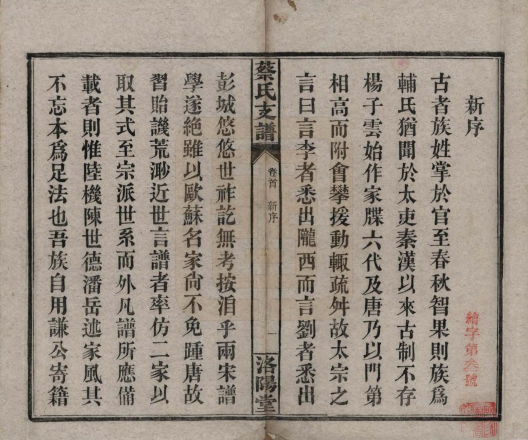 新序
古者族姓掌於官至春秋智果則族爲
輔氏猶聞於太吏秦漢以來古制不存
楊子雲始作家牒六代及唐乃以門第
相高而附會攀援動輒疏舛故太宗之
言曰言李者悉出隴西而言劉者悉出
蔡氏支譜
卷首 新序
一
洛陽堂
彭城悠悠世祚訖無考按洎乎兩宋譜
學遂絶雖以歐蘇名家尙不免踵唐故
習貽譏荒渺近世言譜者率仿二家以
取其式至宗派世系而外凡譜所應備
載者則惟陸機陳世德潘岳述家風其
不忘本爲足法也吾族自用謙公寄籍
繪字第叁號